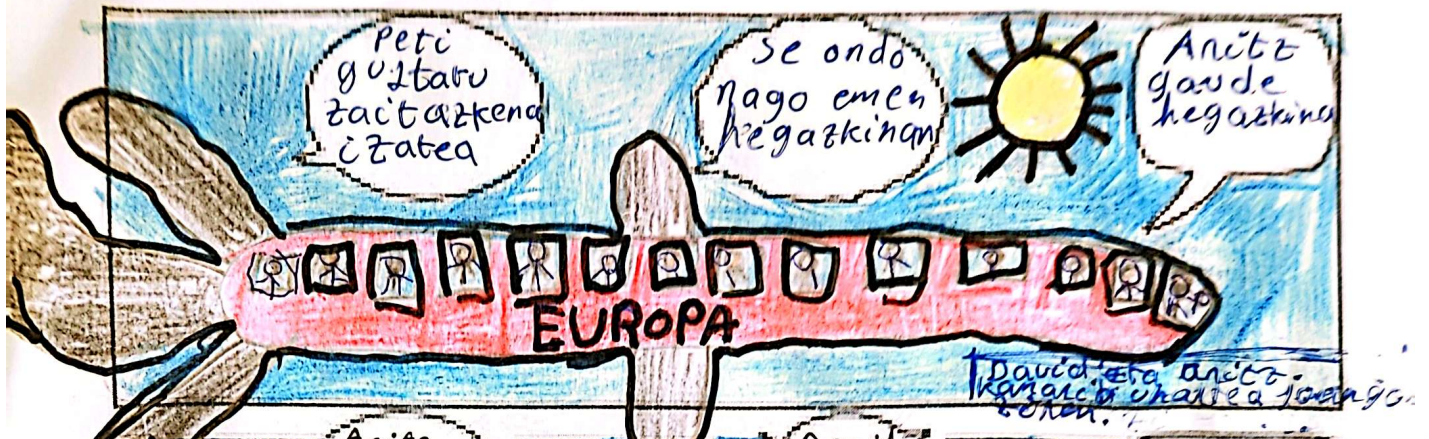 Peti
guztatu
zait azkena
izatea
se ondo
nago emen
hegazkinan
Anitz
gaude
hegazkina
EUROPA
David eta anitz
joango